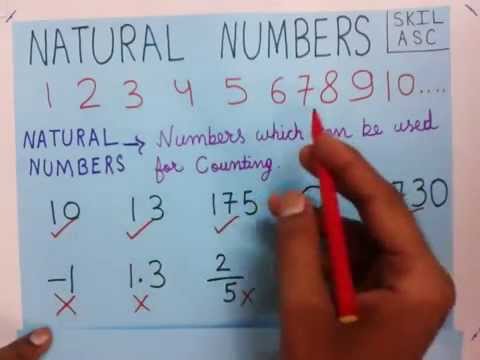 NATURAL NUMBERS
SKIL
ASC
1 2 3 4 5 6 7 8 9 10....
NATURAL → Numbers which can be used
NUMBERS for Counting.
10 13 175
-1 1.3 2/5